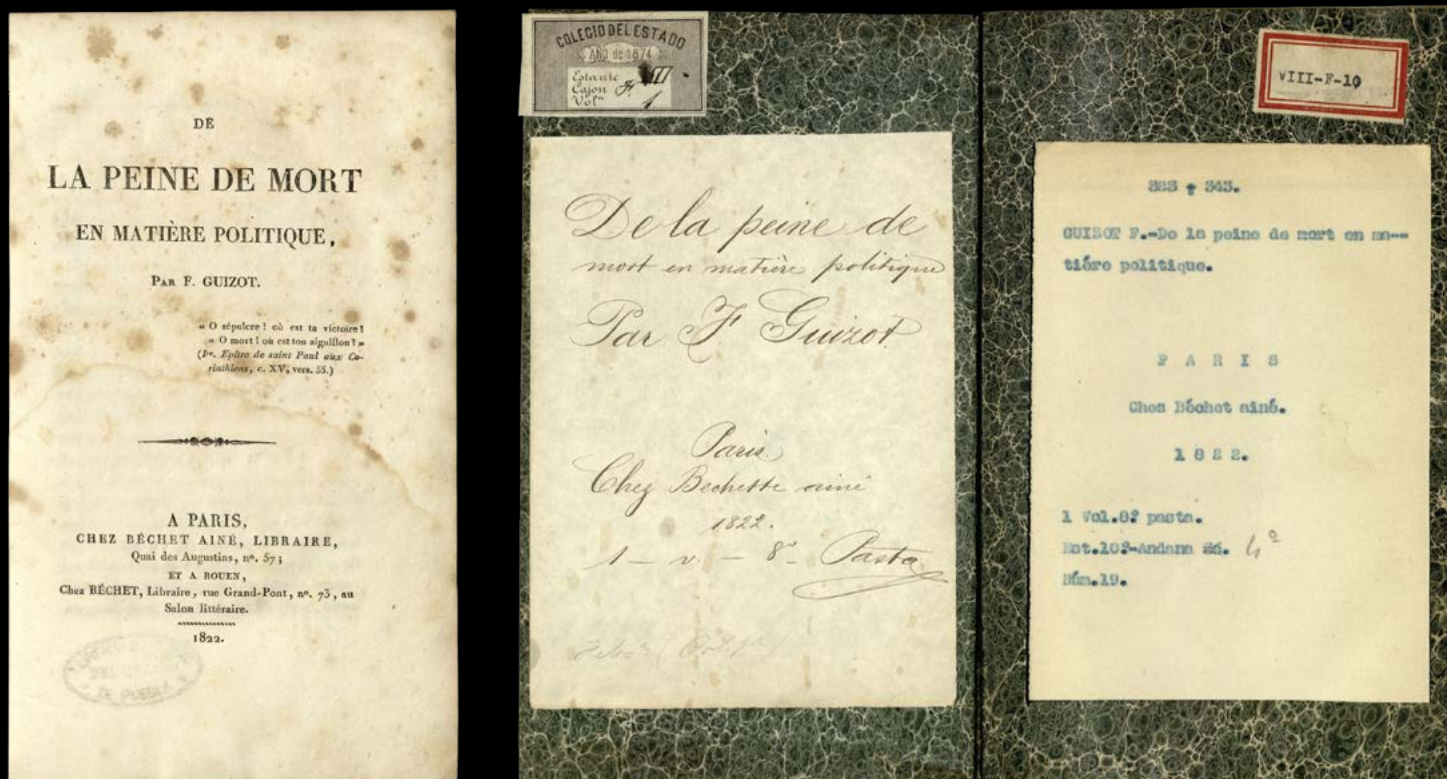 DE
LA PEINE DE MORT
EN MATIÈRE POLITIQUE,
PAR F. GUIZOT.
« O sépulcre ! où est ta victoire !
« O mort ! où est ton aiguillon ? »
(Ire. Epître de saint Paul aux Co-
rinthiens, c. XV, vers. 55.)
A PARIS,
CHEZ BÉCHET AINÉ, LIBRAIRE,
Quai des Augustins, nº. 57 ;
ET A ROUEN,
Chez BÉCHET, Libraire, rue Grand-Pont, nº. 73, au
Salon littéraire.
1822.
DEL
DE PUEBLA
COLEGIO DEL ESTADO
AÑO de 1874
Estante VIII
Cajon F.
Volⁿ 1
De la peine de
mort en matière politique
Par F Guizot
Paris.
Chez Bechette ainé
1822.
1 - v. - 8º - Pasta
VIII-F-10
323 + 343.
GUIZOT F.-De la peine de mort en ma--
tiére politique.
P A R I S
Chez Béchet ainé.
1 8 2 2.
1 Vol.8º pasta.
Est.10º-Andana 4º
Núm.19.